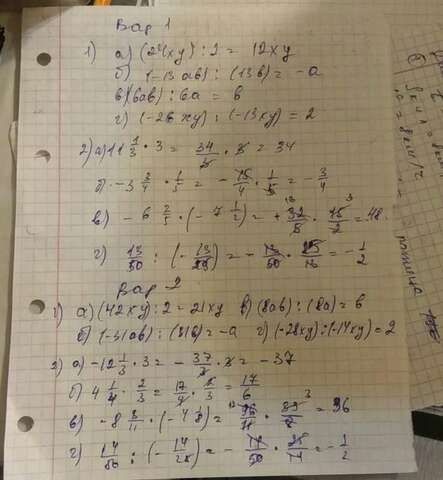 Вар 1
1) а) (24xy) : 2 = 12xy
б) (-13ab) : (13b) = -a
в) (6ab) : 6a = b
г) (-26xy) : (-13xy) = 2
2) а) 11 1/3 · 3 = 34/3 · 3 = 34
б) -3 3/4 · 1/5 = - 15/4 · 1/5 = - 3/4
в) - 6 2/5 · (- 7 1/2) = + 32/5 · 15/2 = 48.
г) 13/50 : (- 13/25) = - 13/50 · 25/13 = - 1/2
Вар 2
1) а) (42xy) : 2 = 21xy в) (8ab) : (8a) = b
б) (-31ab) : (31b) = -a г) (-28xy) : (-14xy) = 2
2) а) -12 1/3 · 3 = - 37/3 · 3 = -37
б) 4 1/4 · 2/3 = 17/4 · 2/3 = 17/6
г) 14/50 : (- 14/25) = - 14/50 · 25/14 = - 1/2